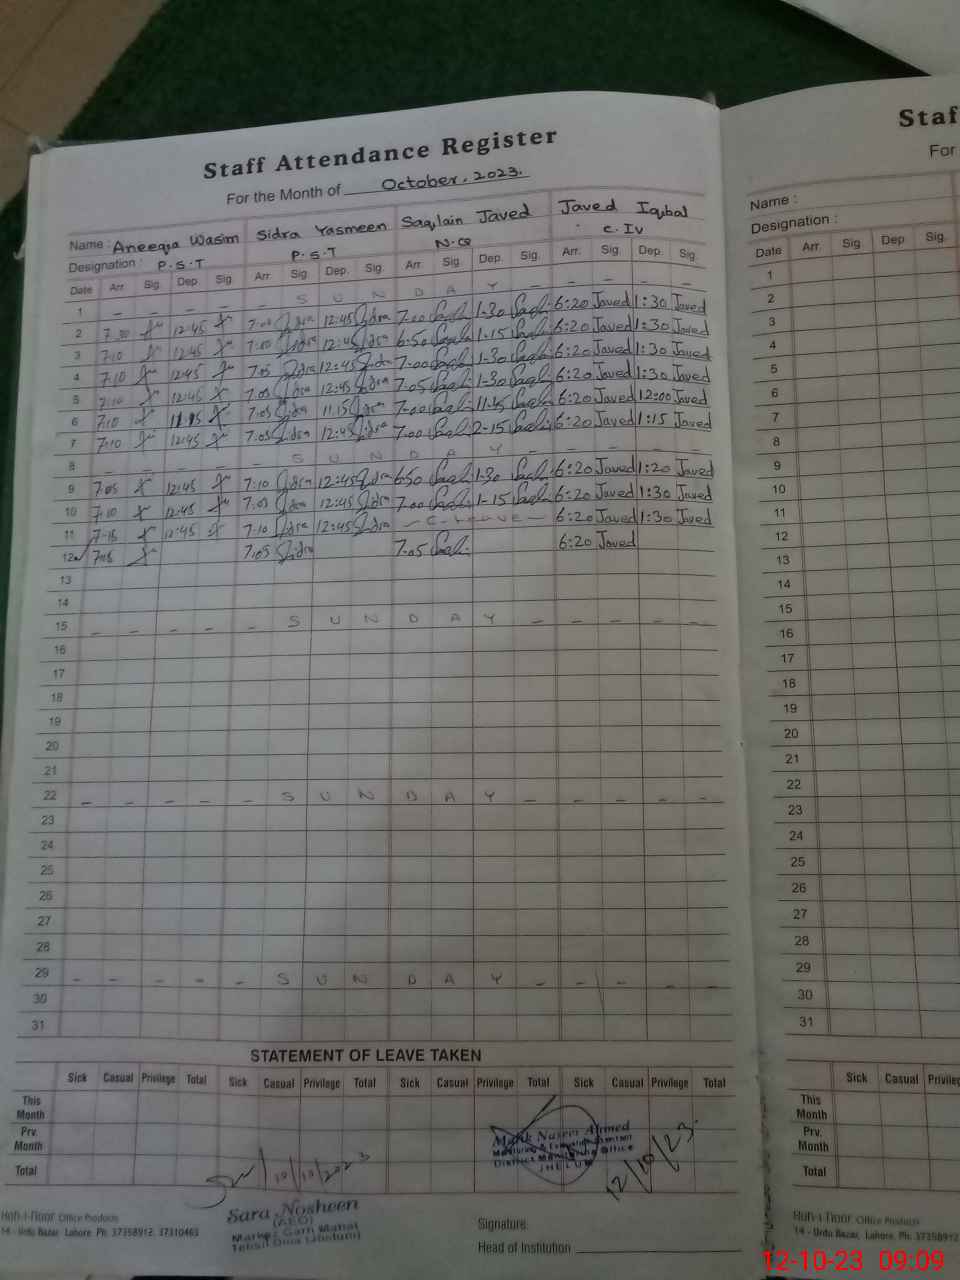 Staff Attendance Register
For the Month of October, 2023.
Name : Aneeqa Wasim Sidra Yasmeen Saqlain Javed Javed Iqbal
Designation : P.S.T P.S.T N.Q C.IV
Date Arr. Sig. Dep. Sig. Arr. Sig. Dep. Sig. Arr. Sig. Dep. Sig. Arr. Sig. Dep. Sig.
1 – – – – – S U N D A Y – – – –
2 7:00 12:45 7:00 Sidra 12:45 Sidra 7:00 1-30 6:20 Javed 1:30 Javed
3 7:10 12:45 7:10 Sidra 12:45 Sidra 6:50 1-15 6:20 Javed 1:30 Javed
4 7:10 12:45 7:05 Sidra 12:45 Sidra 7:00 1-30 6:20 Javed 1:30 Javed
5 7:10 12:45 7:05 Sidra 12:45 Sidra 7:05 1-30 6:20 Javed 1:30 Javed
6 7:10 11:15 7:05 Sidra 11:15 Sidra 7:00 11:15 6:20 Javed 12:00 Javed
7 7:10 12:45 7:05 Sidra 12:45 Sidra 7:00 2-15 6:20 Javed 1:15 Javed
8 – – – – – S U N D A Y – – – –
9 7:05 12:45 7:10 Sidra 12:45 Sidra 6:50 1-30 6:20 Javed 1:20 Javed
10 7:10 12:45 7:05 Sidra 12:45 Sidra 7:00 1-15 6:20 Javed 1:30 Javed
11 7-15 12:45 7:10 Sidra 12:45 Sidra – C-Leave – 6:20 Javed 1:30 Javed
12 7:05 7:05 Sidra 7:05 6:20 Javed
13
14
15 – – – – – S U N D A Y – – – – –
16
17
18
19
20
21
22 – – – – – S U N D A Y – – – – –
23
24
25
26
27
28
29 – – – – – S U N D A Y – – – – –
30
31
STATEMENT OF LEAVE TAKEN
Sick Casual Privilege Total Sick Casual Privilege Total Sick Casual Privilege Total Sick Casual Privilege Total
This Month
Prv. Month
Total
10/10/2023
Malik Naseer Ahmed
Monitoring & Evaluation Assistant
District Monitoring Office
JHELUM
12/10/23
Sara Nosheen
(AEO)
Tehsil Dina (Jhelum)
Roh-i-Noor Office Products
14 - Urdu Bazar, Lahore. Ph. 37358912, 37310463
Signature:
Head of Institution
Staf
For
Name :
Designation :
Date Arr. Sig Dep. Sig.
1
2
3
4
5
6
7
8
9
10
11
12
13
14
15
16
17
18
19
20
21
22
23
24
25
26
27
28
29
30
31
Sick Casual Privileg
This Month
Prv. Month
Total
Roh-i-Noor Office Products
14 - Urdu Bazar, Lahore. Ph. 37358912
12-10-23 09:09